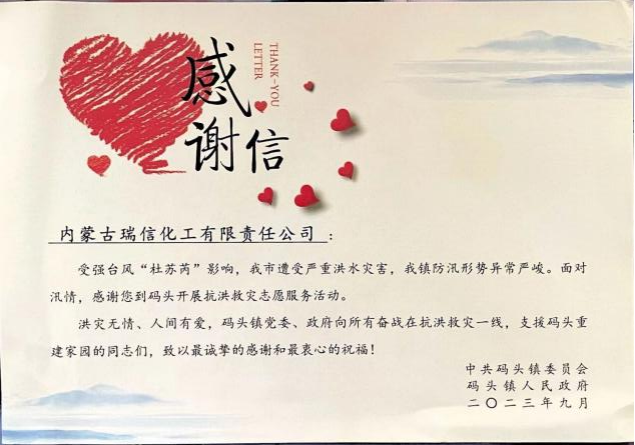 感谢信
THANK-YOU
LETTER
内蒙古瑞信化工有限责任公司：
受强台风“杜苏芮”影响，我市遭受严重洪水灾害，我镇防汛形势异常严峻。面对
汛情，感谢您到码头开展抗洪救灾志愿服务活动。
洪灾无情、人间有爱，码头镇党委、政府向所有奋战在抗洪救灾一线，支援码头重
建家园的同志们，致以最诚挚的感谢和最衷心的祝福！
中共码头镇委员会
码头镇人民政府
二〇二三年九月